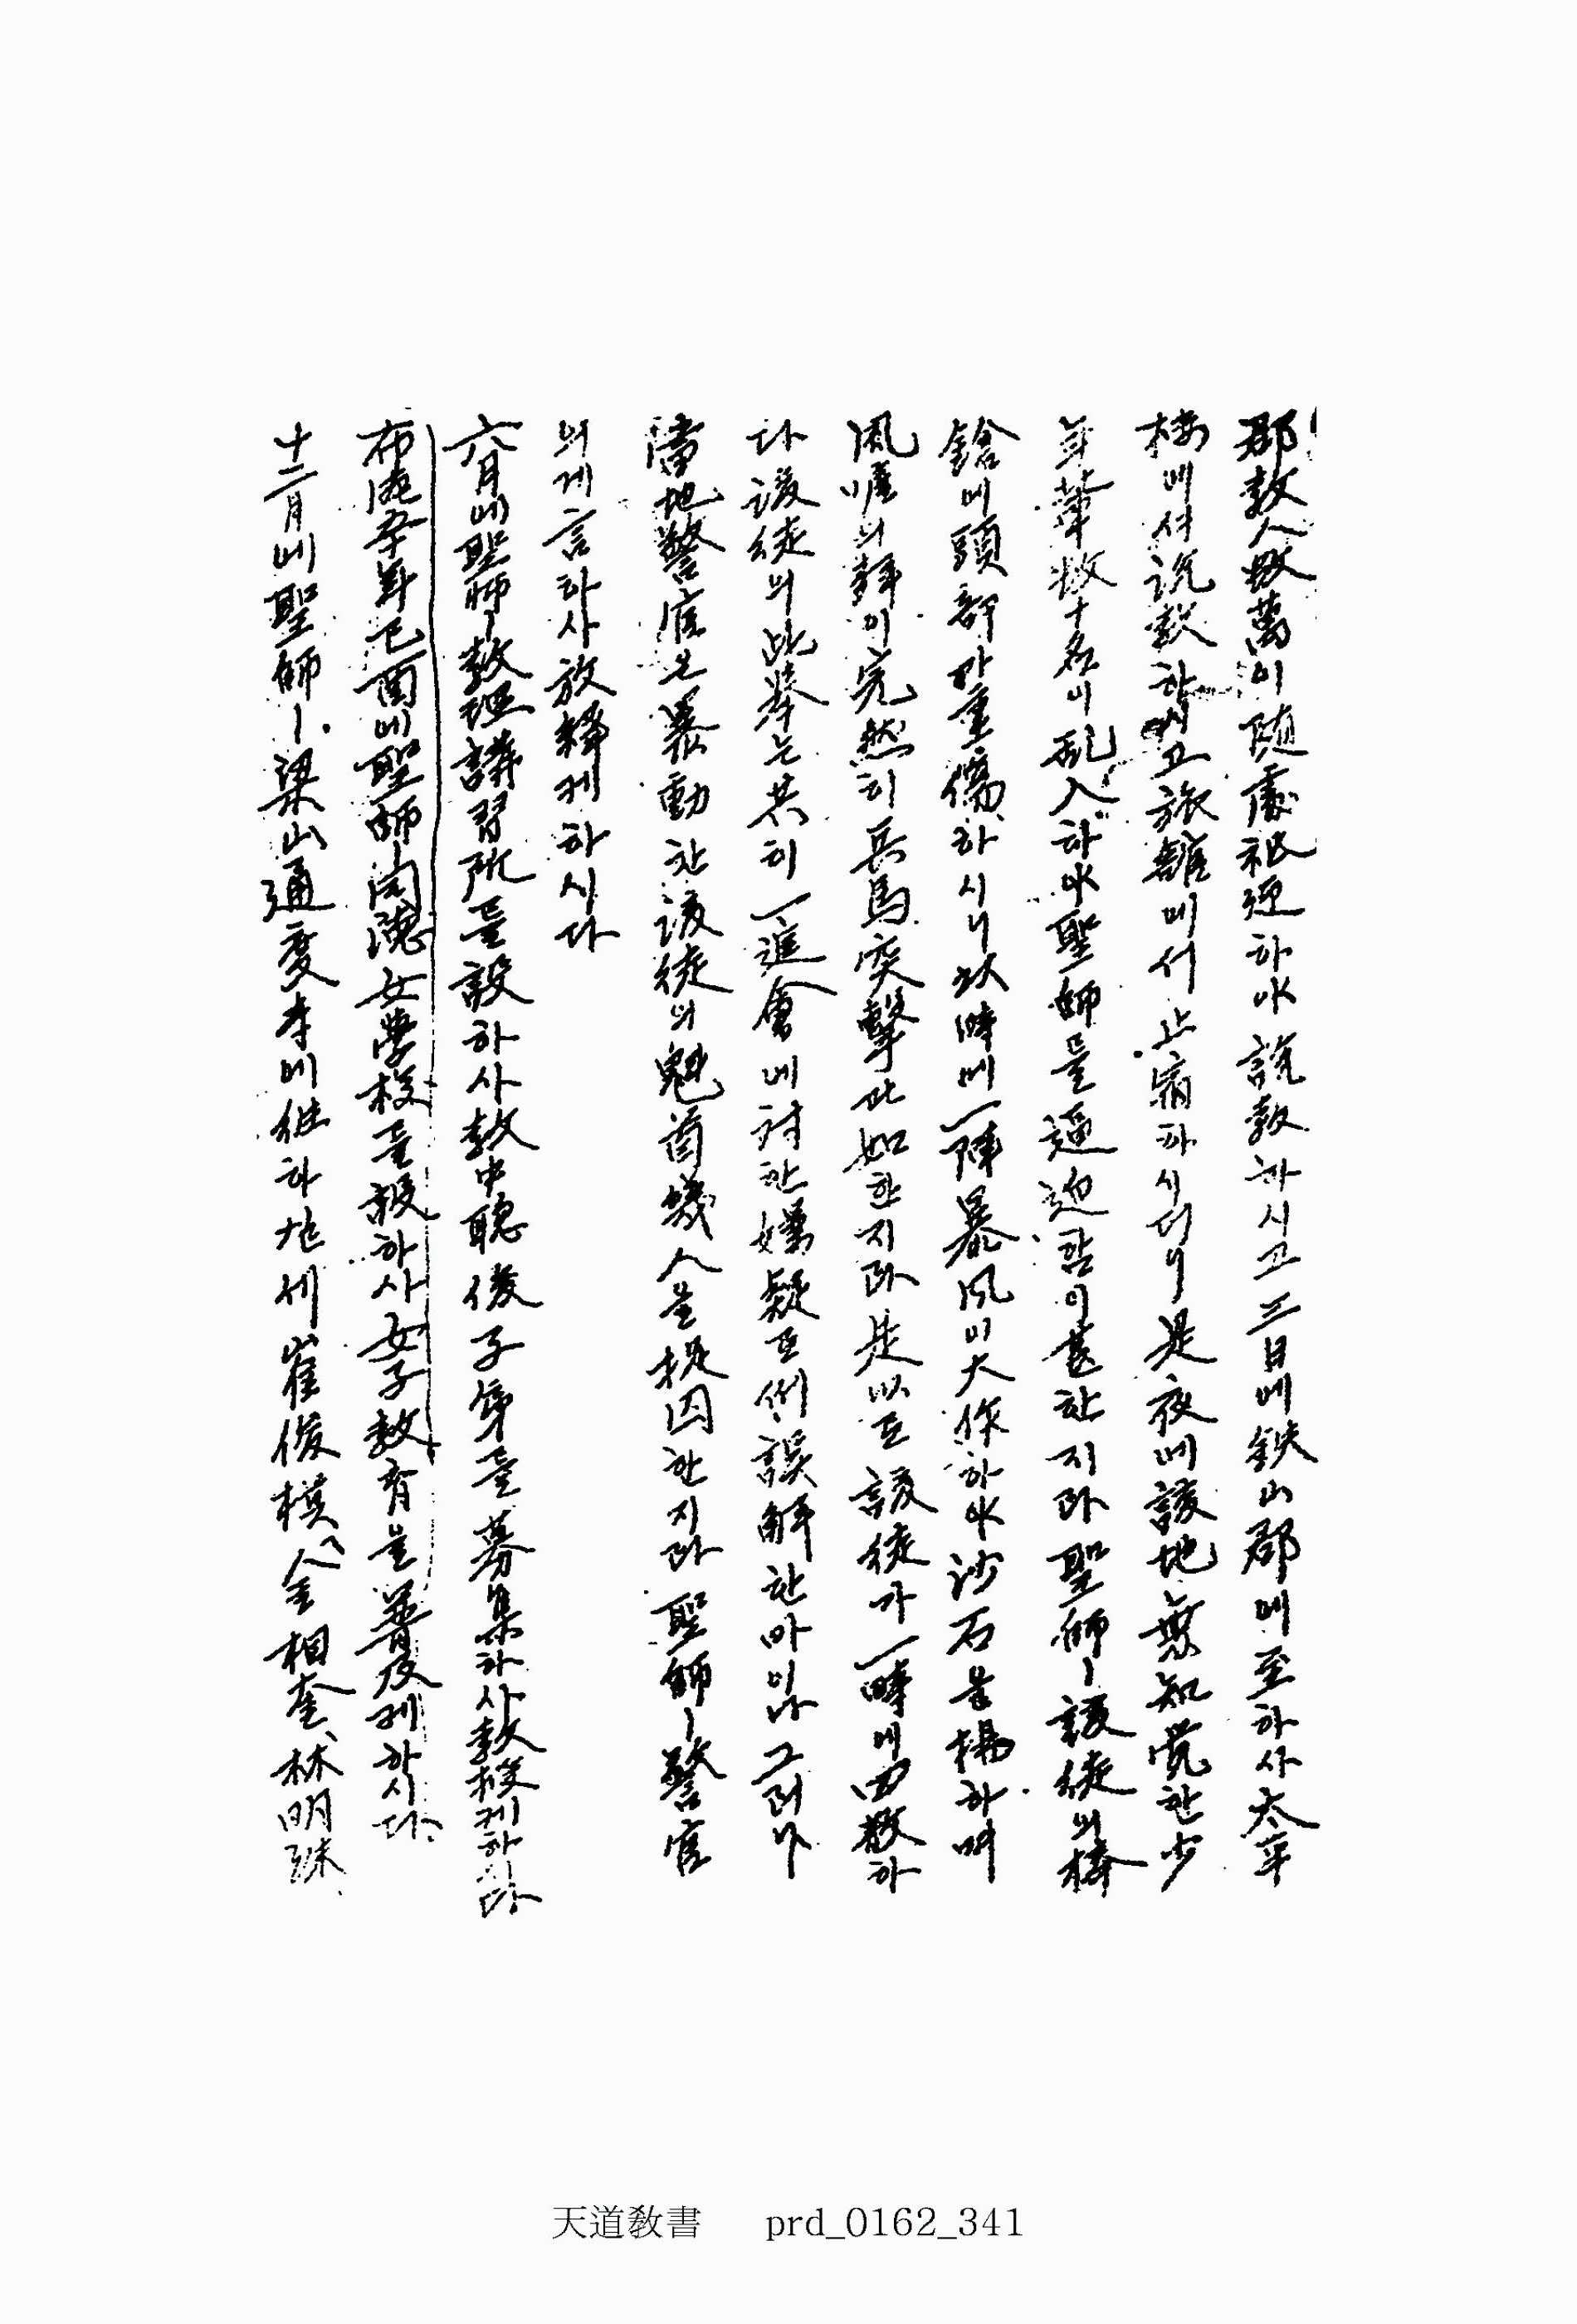 郡敎人數萬이隨處祗迎하야說敎하시고三日에鉄山郡에至하사太平
樓에셔說敎하시고旅館에서止宿하시더니是夜에該地無知覺한少
年輩數十名이亂入하야聖師를逼迫함이甚한지라聖師ㅣ該徒의棒
鎗에頭部가重傷하시니此時에一陣暴風이大作하야沙石을揚하며
風 의聲이宛然히兵馬突擊과如한지라是以로該徒가一時에四散하
다該徒의此擧는共히一進會에對한嫌疑로 誤解한바이나그러나
當地警官은暴動한該徒의魁首幾人을捉囚한지라聖師ㅣ警官
의게言하사放釋케하시다
六月에聖師ㅣ敎理講習所를設하사敎中聰俊子弟를募集하사敎授케하시다
布德五十年己酉에聖師ㅣ同德女學校를設하사女子敎育을普及케하시다
十二月에聖師ㅣ梁山通度寺에往하실세崔俊模、金相奎、林明洙
天道敎書 prd_0162_341